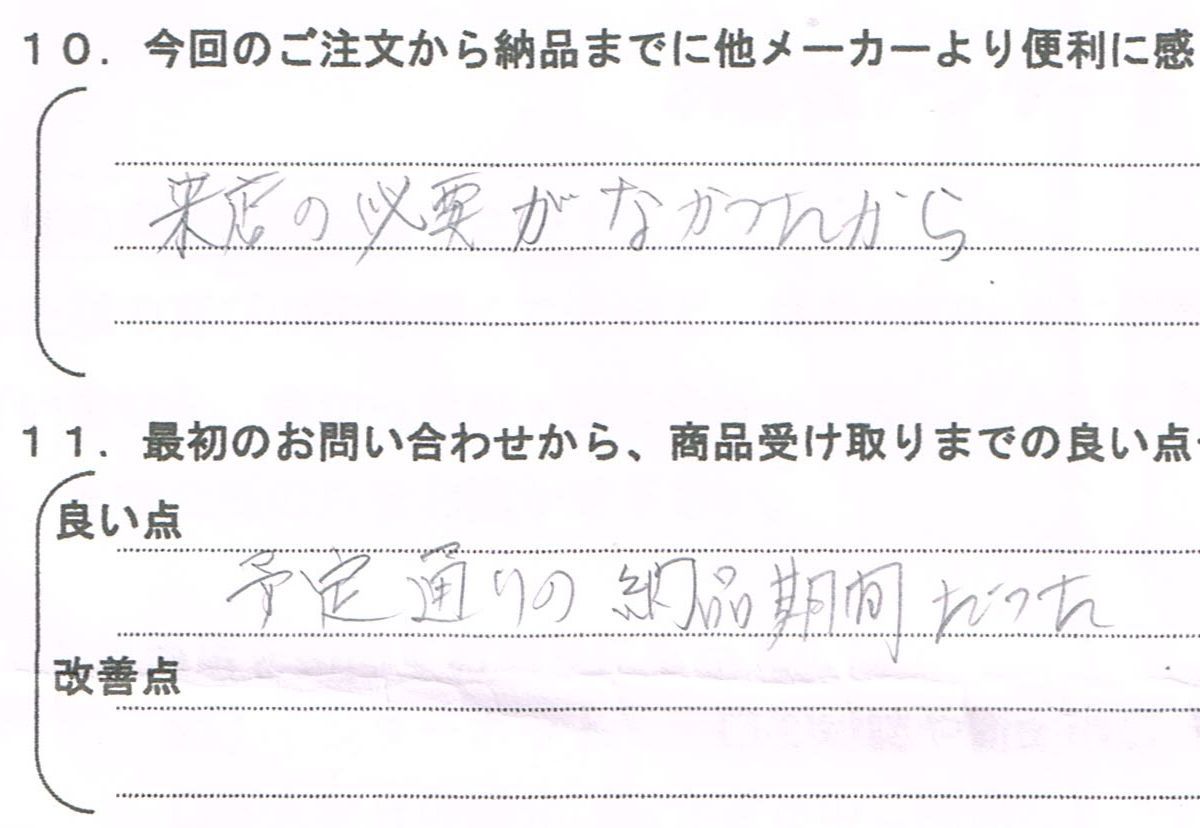 １０．今回のご注文から納品までに他メーカーより便利に感
来店の必要がなかったから
１１．最初のお問い合わせから、商品受け取りまでの良い点
良い点
予定通りの納品期間だった
改善点